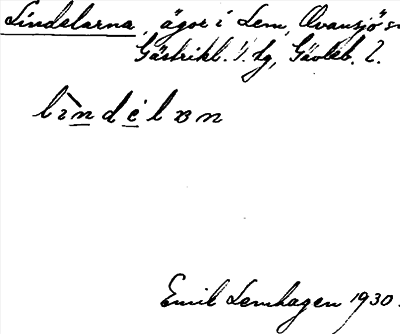 Lindelarna, ägor i Lem, Ovansjö sn
Gästrikl. V. dg, Gävleb. l.
lìndélan
Emil Lemhagen 1930.